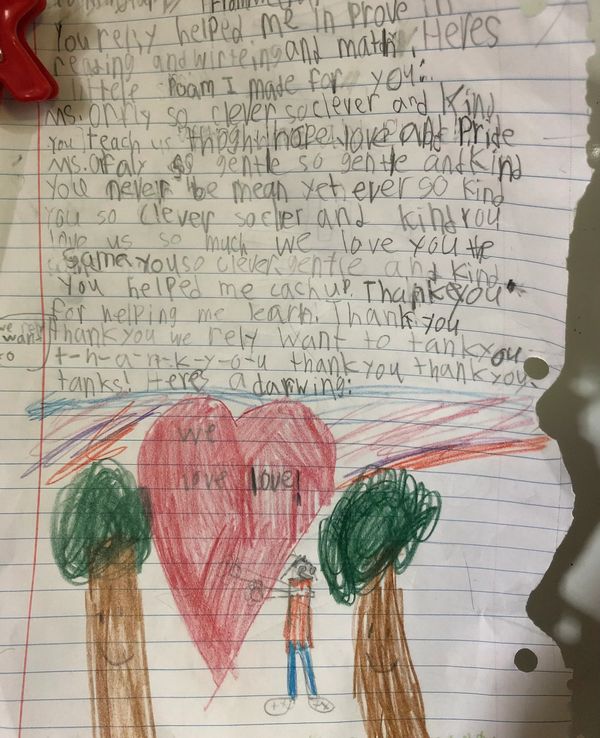 You relly helped me in prove in
reading and wirteing and math. Heres
littele Poam I made for you:
Ms. so clever so clever and kind
you teach us hope love and Pride
Ms. so gentle so gentle and kind
you never be mean yet ever so kind
you so clever socler and kind you
love us so much we love you the
same. you so clever, gentle and kind
You helped me cachup. Thankyou
for helping me learn. Thank you
we rely
want
to
thankyou we rely want to tankyou
t-h-a-n-k-y-o-u thankyou thankyou
tanks! Heres a darwing:
we
love love!